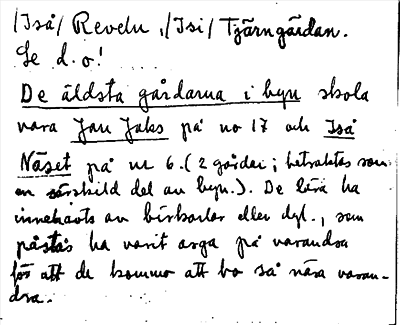 /Iså/ Revelu, /Isi/ Tjärngårdan.
Se d.o!
De äldsta gårdarna i byn skola
vara Jan Jaks på no 17 och Iså
Näset på nr 6. (2 gårdar; betraktas som
en särskild del av byn.). De lära ha
innehavts av birkarlar eller dyl., som
påstås ha varit arga på varandra
för att de kommo att bo så nära varan-
dra.